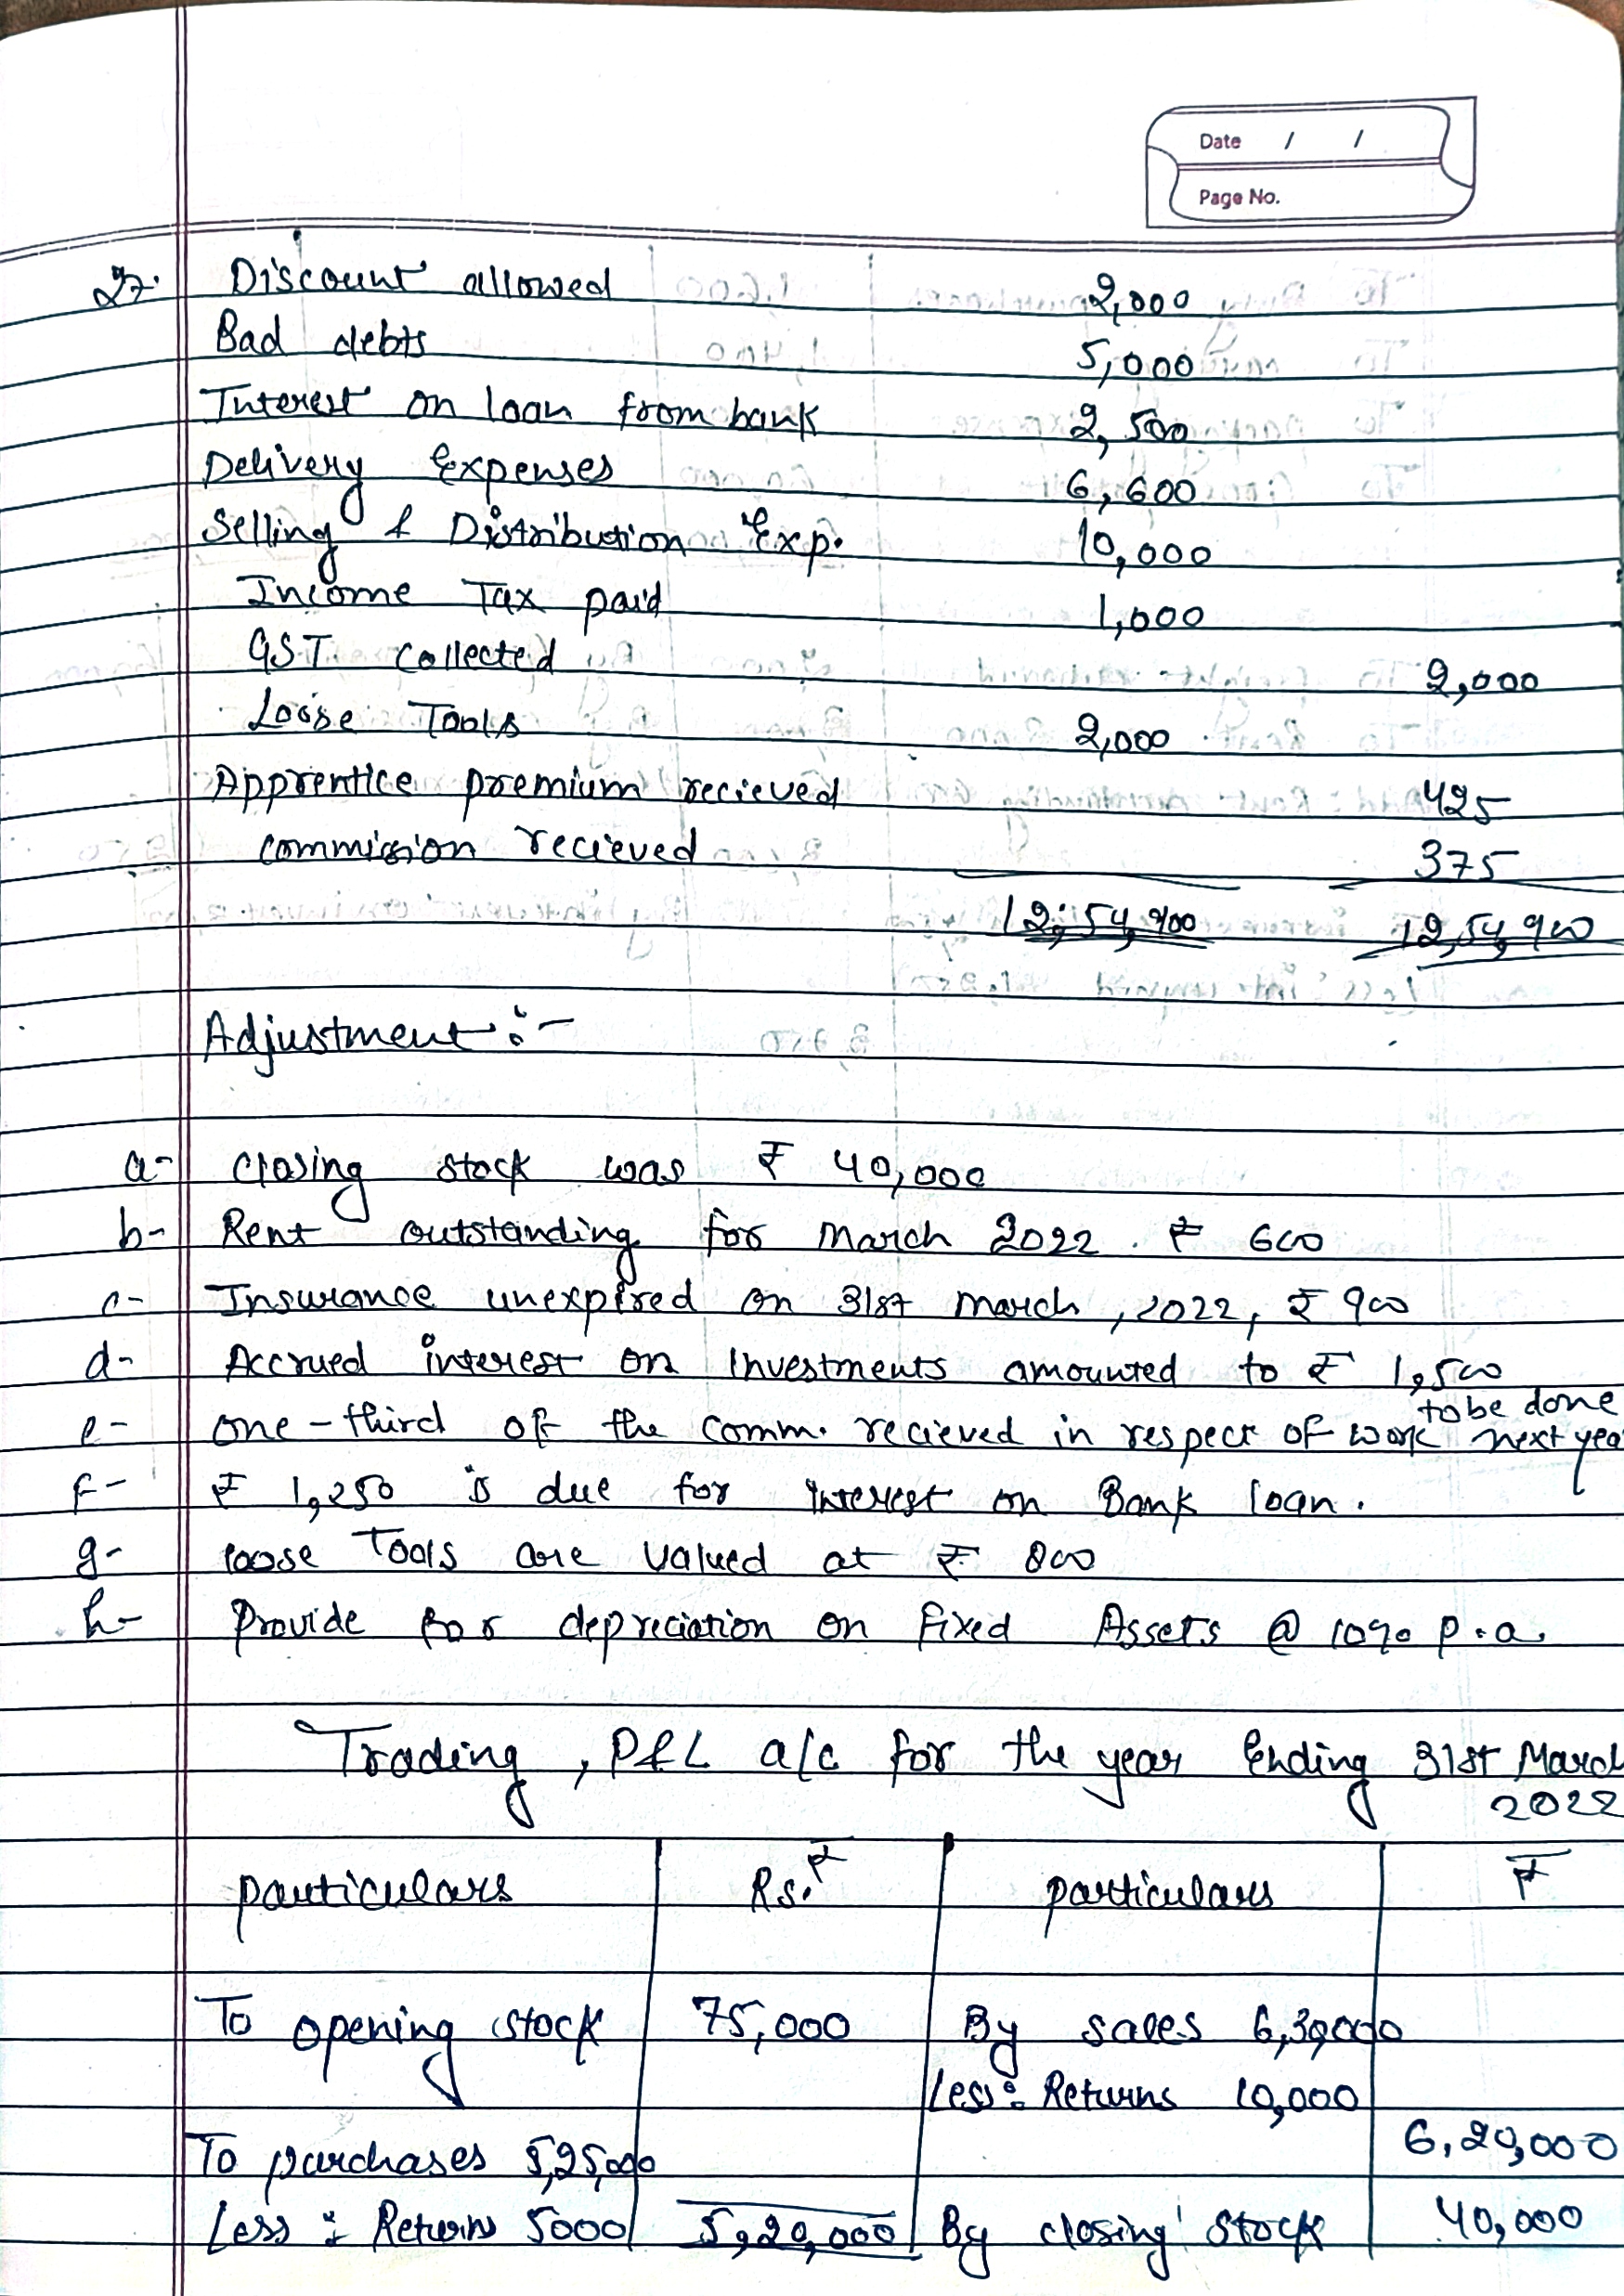 Date / /
Page No.
27. Discount allowed 2,000
Bad debts 5,000
Interest on loan from bank 2,500
Delivery Expenses 6,600
Selling & Distribution Exp. 10,000
Income Tax paid 1,000
GST collected 2,000
Loose Tools 2,000
Apprentice premium recieved 425
commission recieved 375
12,54,900 12,54,900
Adjustment :-
a- closing stock was ₹ 40,000
b- Rent outstanding for March 2022. ₹ 600
c- Insurance unexpired on 31st March, 2022, ₹ 900
d- Accrued interest on Investments amounted to ₹ 1,500
to be done
e- one-third of the comm. recieved in respect of work next yea
f- ₹ 1,250 is due for interest on Bank loan.
g- loose Tools are valued at ₹ 800
h- Provide for depreciation on fixed Assets @ 10% p.a.
Trading, P&L a/c for the year Ending 31st March
2022
particulars Rs.₹ particulars ₹
To opening stock 75,000 By sales 6,30,000
Less: Returns 10,000
6,20,000
To purchases 5,25,000
Less: Return 5000 5,20,000 By closing stock 40,000